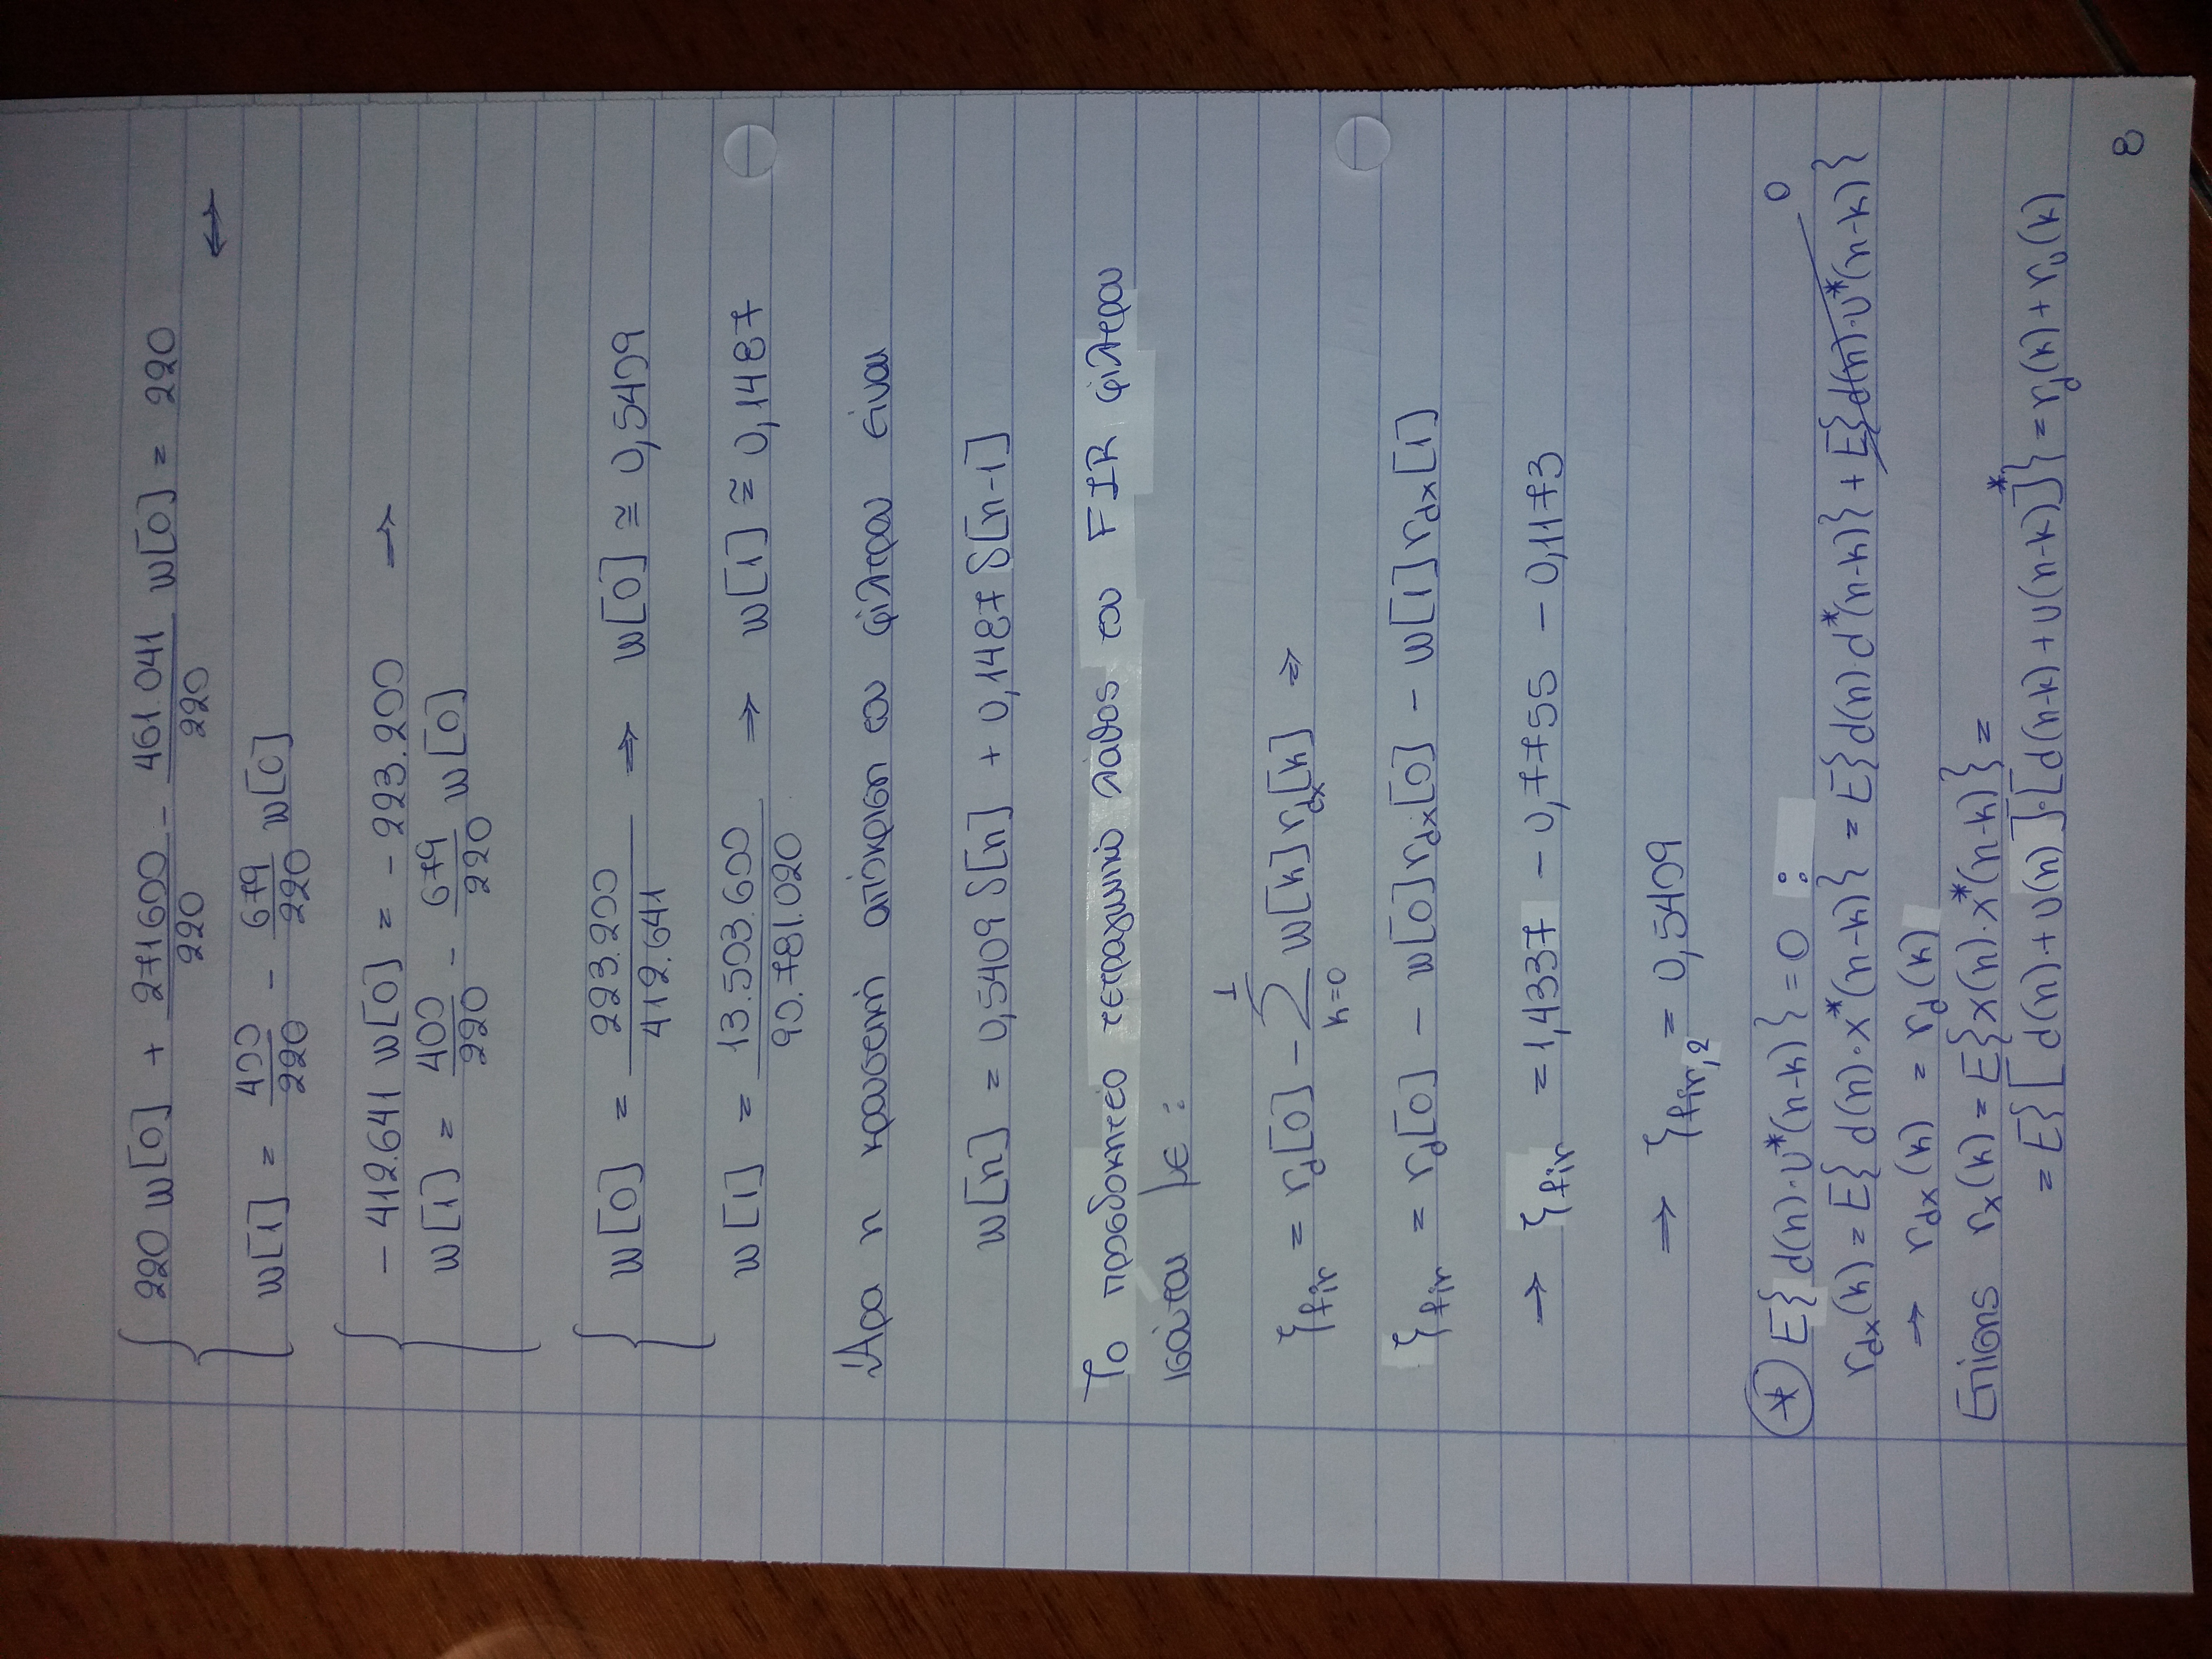 220 w[0] + 271600/220 - 461.041/220 w[0] = 220
⟺
w[1] = 400/220 - 679/220 w[0]
- 412.641 w[0] = - 223.200 ⟹
w[1] = 400/220 - 679/220 w[0]
w[0] = 223.200/412.641 ⟹ w[0] ≅ 0,5409
w[1] = 13.503.600/90.781.020 ⟹ w[1] ≅ 0,1487
Άρα η κρουστική απόκριση του φίλτρου είναι
w[n] = 0,5409 δ[n] + 0,1487 δ[n-1]
Το προσδοκητέο τετραγωνικό λάθος του FIR φίλτρου
ισούται με :
ξfir = rd[0] - Σ_{k=0}^{1} w[k] rdx[k] ⟹
ξfir = rd[0] - w[0] rdx[0] - w[1] rdx[1]
⟹ ξfir = 1,4337 - 0,7755 - 0,1173
⟹ ξfir,2 = 0,5409
* E{d(n)·υ*(n-k)} = 0 :
0
rdx(k) = E{d(n)·x*(n-k)} = E{d(n)·d*(n-k)} + E{d(n)·υ*(n-k)}
⟹ rdx(k) = rd(k)
Επίσης rx(k) = E{x(n)·x*(n-k)} =
= E{[d(n)+υ(n)]·[d(n-k)+υ(n-k)]*} = rd(k) + rυ(k)
8